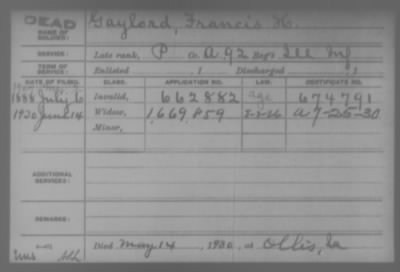 DEAD
NAME OF SOLDIER: Gaylord, Francis H.
SERVICE: Late rank, P Co. A, 92 Reg't Ill Inf
TERM OF SERVICE: Enlisted 1 Discharged 1
DATE OF FILING. CLASS. APPLICATION NO. LAW. CERTIFICATE NO.
1888 July 6 Invalid, 662882 age 674791
1920 June 14 Widow, 1,669,859 a 7-26-30
Minor,
ADDITIONAL SERVICES:
REMARKS:
Died May 14, 1920, at Ollis, Ia